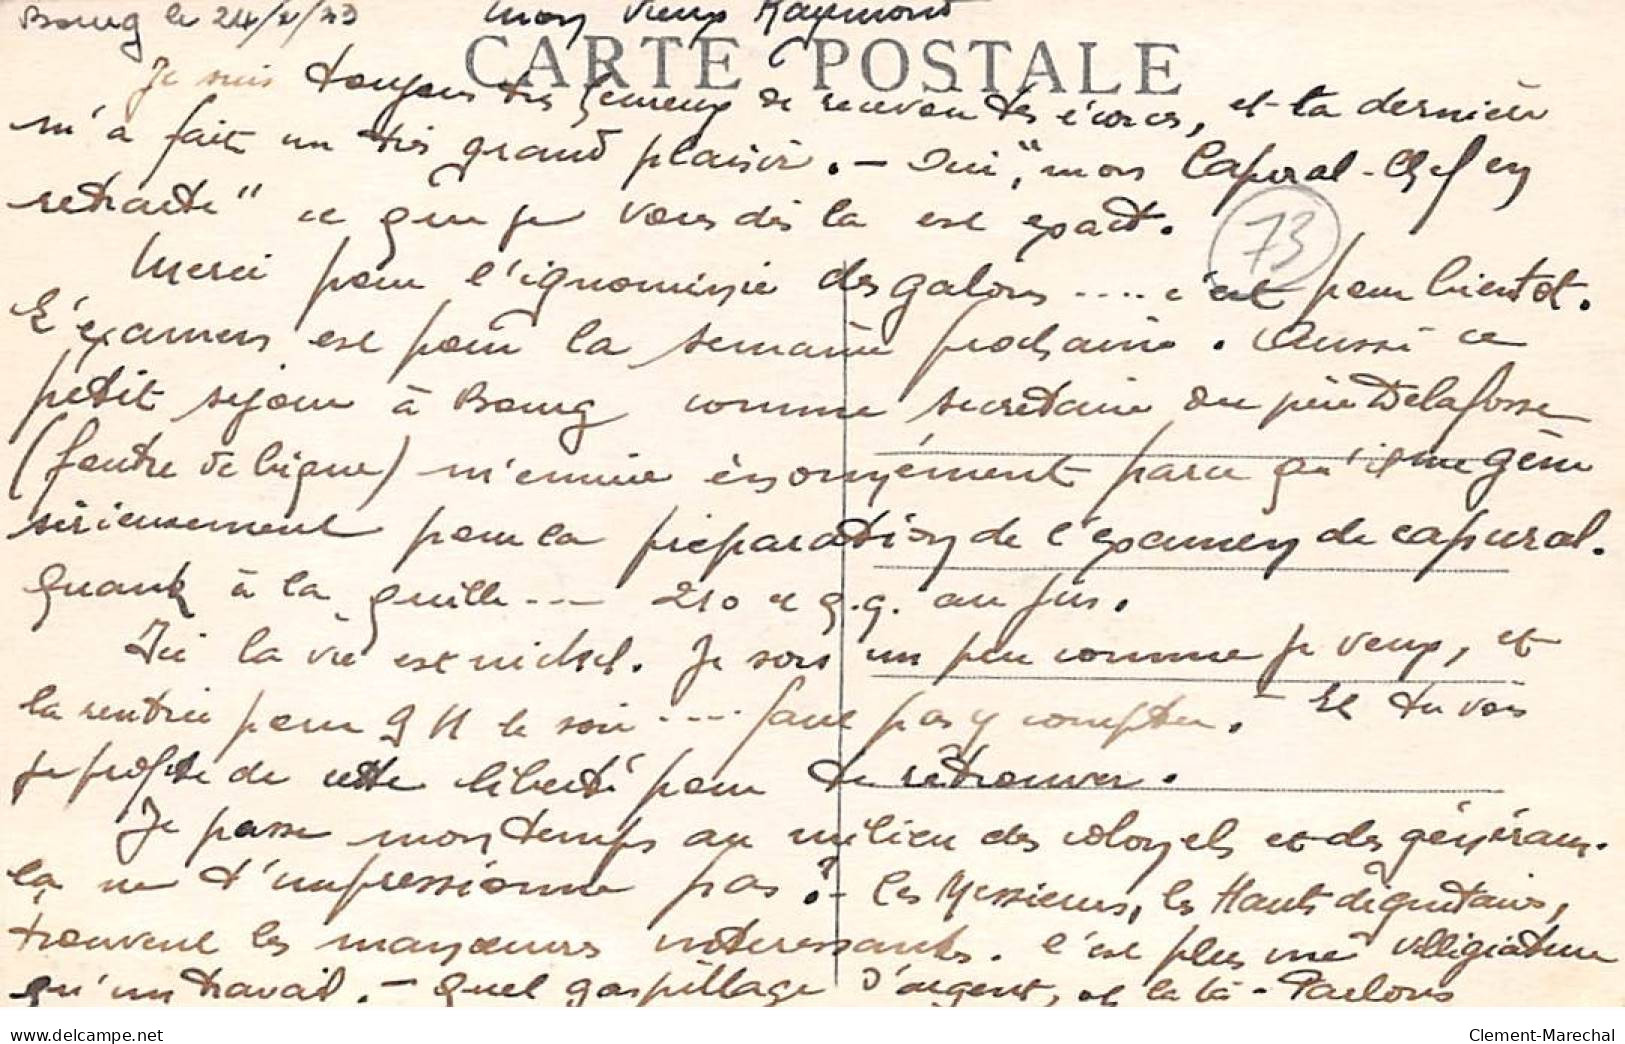 Bourg le 24/ / Mon Vieux Raymond
CARTE POSTALE
Je suis toujours très heureux de recevoir tes écrits, et ta dernière
m'a fait un très grand plaisir. – Oui, "mon Caporal-Chef en
retraite" ce que je vous dis là est exact.
73
Merci pour l'ignominie des galons .... c'est pour bientot.
L'examen est pour la semaine prochaine. Aussi ce
petit sejour à Bourg comme secretaire du père Delafosse
(foutre de bique) m'ennuie énormément parce qu'il me gène
sérieusement pour la préparation de l'examen de caporal.
Quant à la quille --- 210 et q.q. au jus.
Ici la vie est nickel. Je sors un peu comme je veux, et
la rentrée pour 9 H le soir .... faut pas y compter. – Et tu vois
je profite de cette liberté pour te retrouver.
Je passe mon temps au milieu des colonels et des généraux.
ça ne t'impressionne pas? – Ces Messieurs, les Hauts dignitaires,
trouvent les manœuvres intéressantes. C'est plus une villégiature
qu'un travail. – Quel gaspillage d'argent, et la là – Parlons
delcampe.net
Clement-Marechal